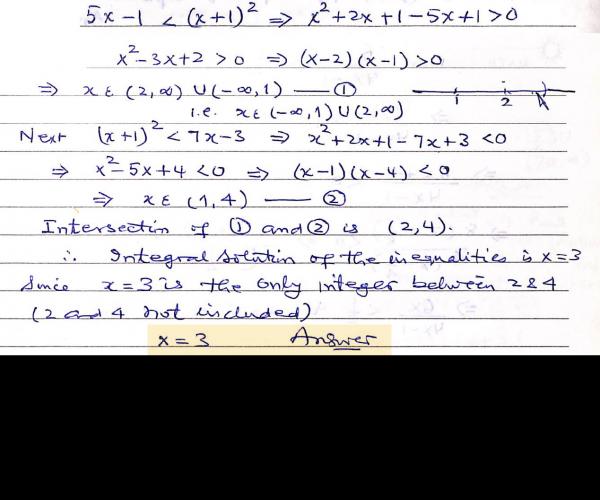 5x-1 < (x+1)² ⇒ x²+2x+1-5x+1>0
x²-3x+2 >0 ⇒ (x-2)(x-1)>0
⇒ x ε (2,∞) ∪ (-∞,1) — ①
1 2
i.e. x ε (-∞,1) ∪ (2,∞)
Next (x+1)² < 7x-3 ⇒ x²+2x+1-7x+3 <0
⇒ x²-5x+4 <0 ⇒ (x-1)(x-4) <0
⇒ x ε (1,4) — ②
Intersectin of ① and ② is (2,4).
∴ Integral solutin of the inequalities is x=3
Since x=3 is the only integer between 2&4
(2 and 4 not included)
x=3 Answer